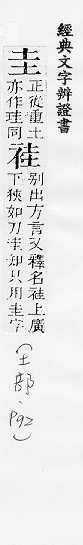 經典文字辨證書
圭正從重土
亦作珪同袿別出方言又釋名袿上廣
下狹如刀圭知只用圭字
(土部.P92)